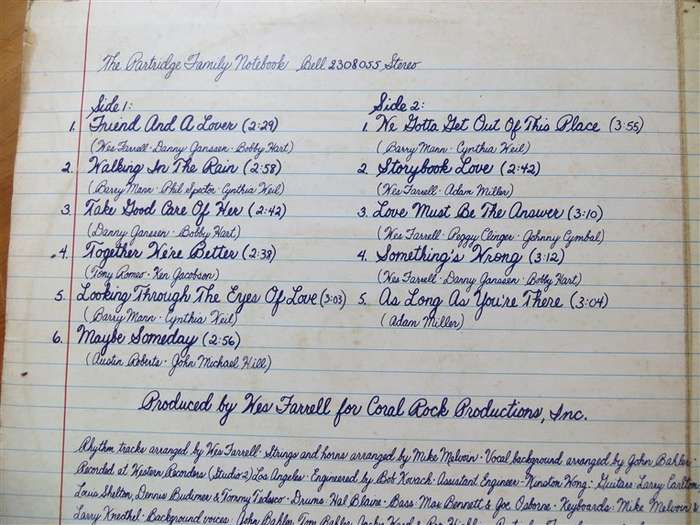 The Partridge Family Notebook Bell 2308055, Stereo
Side 1:
1. Friend And A Lover (2:29)
(Wes Farrell · Danny Janssen · Bobby Hart)
2. Walking In The Rain (2:58)
(Barry Mann · Phil Spector · Cynthia Weil)
3. Take Good Care Of Her (2:42)
(Danny Janssen · Bobby Hart)
4. Together We're Better (2:38)
(Tony Romeo · Ken Jacobson)
5. Looking Through The Eyes Of Love (3:03)
(Barry Mann · Cynthia Weil)
6. Maybe Someday (2:56)
(Austin Roberts · John Michael Hill)
Side 2:
1. We Gotta Get Out Of This Place (3:55)
(Barry Mann · Cynthia Weil)
2. Storybook Love (2:42)
(Wes Farrell · Adam Miller)
3. Love Must Be The Answer (3:10)
(Wes Farrell · Peggy Clinger · Johnny Cymbal)
4. Something's Wrong (3:12)
(Wes Farrell · Danny Janssen · Bobby Hart)
5. As Long As You're There (3:04)
(Adam Miller)
Produced by Wes Farrell for Coral Rock Productions, Inc.
Rhythm tracks arranged by Wes Farrell · Strings and horns arranged by Mike Melvoin · Vocal background arranged by John Bahler
Recorded at Western Recorders (Studio 2) Los Angeles · Engineered by Bob Kovach · Assistant Engineer · Winston Wong · Guitars: Larry Carlton
Louis Shelton, Dennis Budimer & Tommy Tedesco · Drums: Hal Blaine · Bass: Max Bennett & Joe Osborne · Keyboards: Mike Melvoin
Larry Knechtel · Background voices: John Bahler, Tom Bahler,